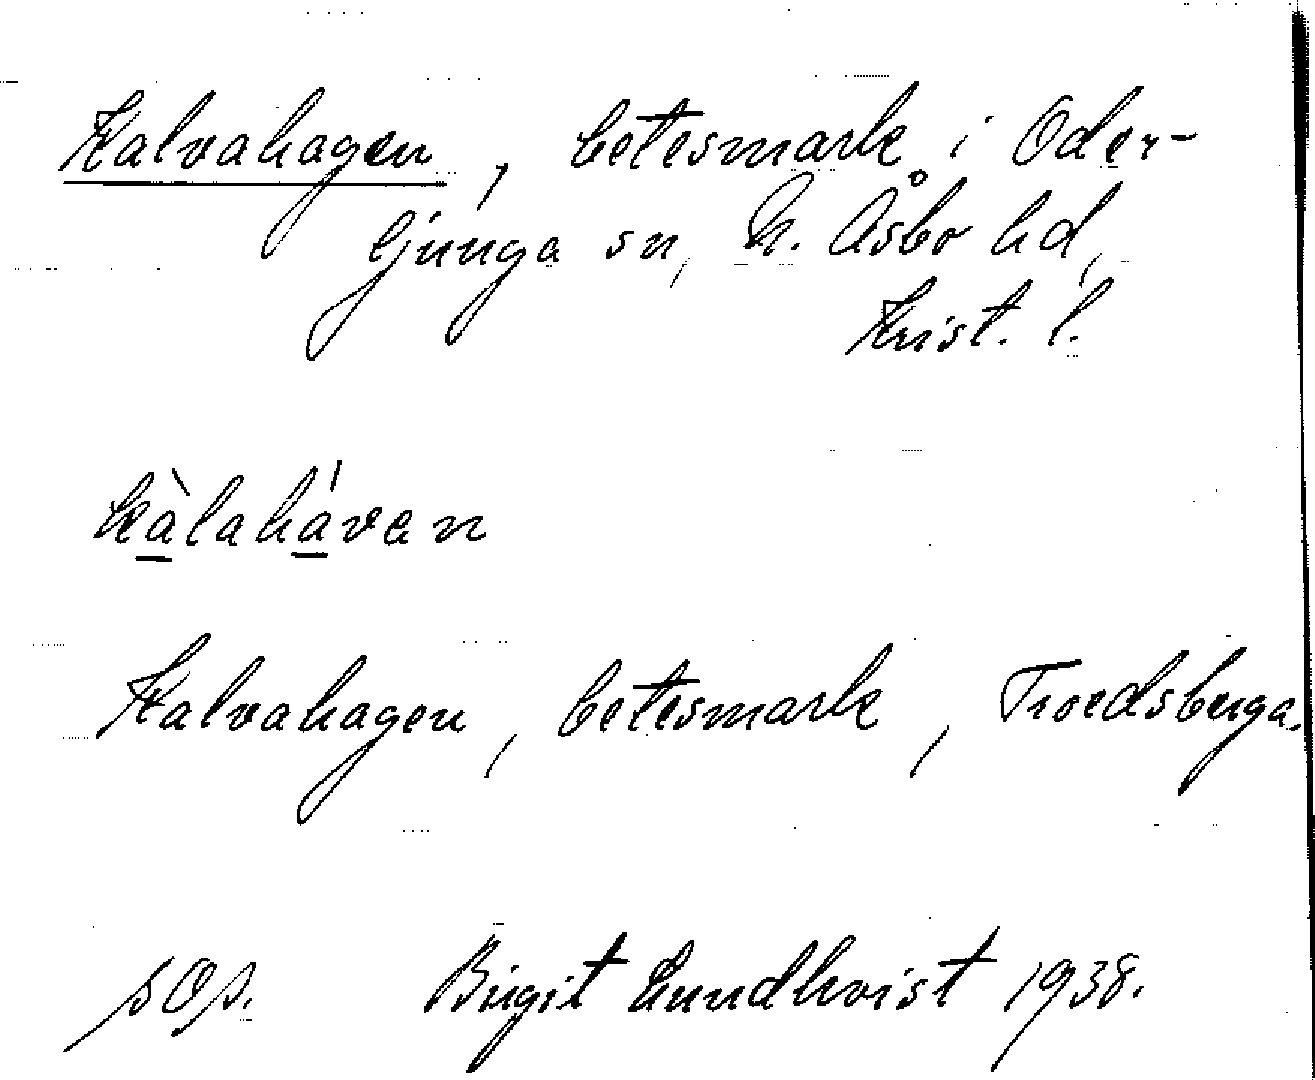 Kalvahagen, betesmark i Oder-
ljunga sn, N. Åsbo hd,
Krist. l.
kàlaháven
Kalvahagen, betesmark, Troedsberga.
Birgit Lundkvist 1938.